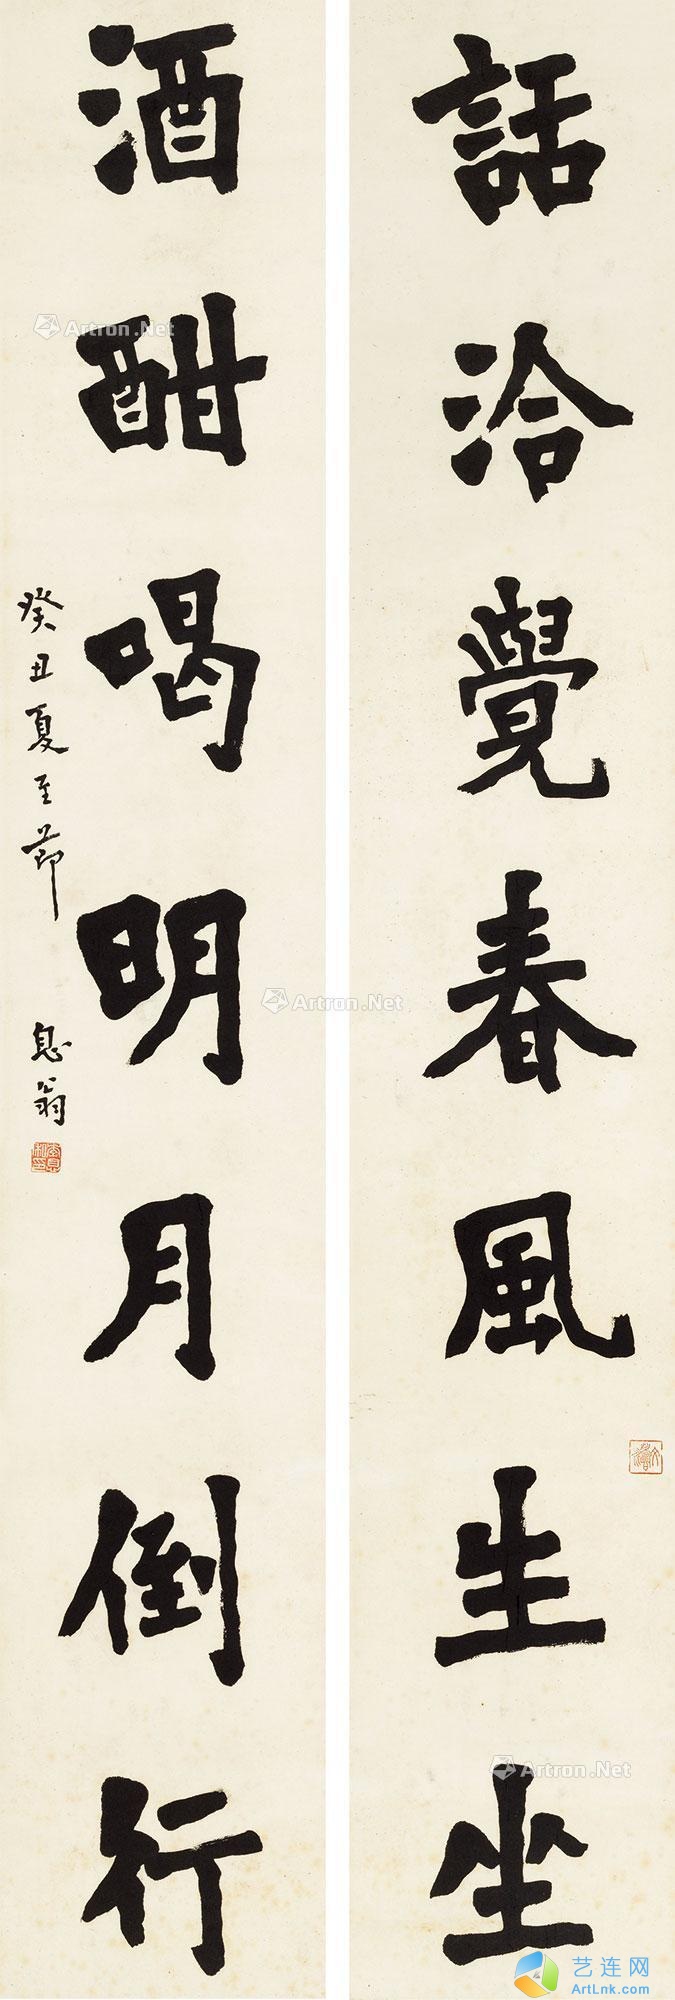 話洽覺春風生坐
酒酣喝明月倒行
癸丑夏至節
息翁
Artron.Net
Artron.Net
Artron.Net
艺连网
ArtLnk.com